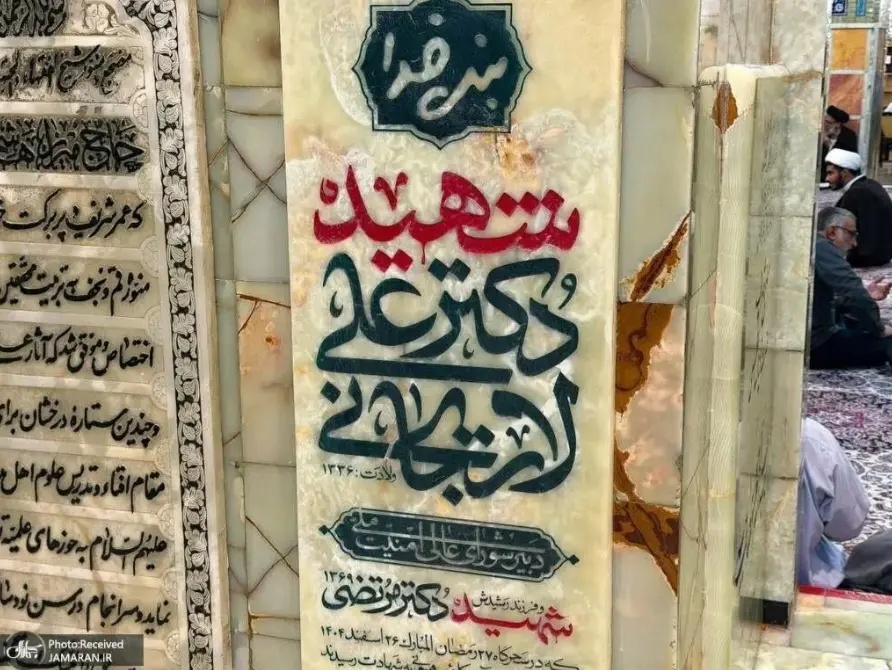 بنده خدا
شهید
دکتر علی
لاریجانی
ولادت: ۱۳۳۶
دبیر شورای عالی امنیت ملی
و فرزند رشیدش
شهید دکتر مرتضی ۱۳۶۹
که در سحرگاه ۲۷ رمضان المبارک ۲۶ اسفند ۱۴۰۴
شهادت رسیدند
حاج میرزا هاشم
که عمر شریف و پر برکت
منوّر قم و نجف به تربیت محققین
اختصاص و موفق شد که آثار
و چندین ستارهٔ درخشان برای
مقام افتاء و تدریس علوم اهل
علیهم السلام به حوزه‌های علمیه
نماید و سرانجام در سن نود
Photo:Received
JAMARAN.IR